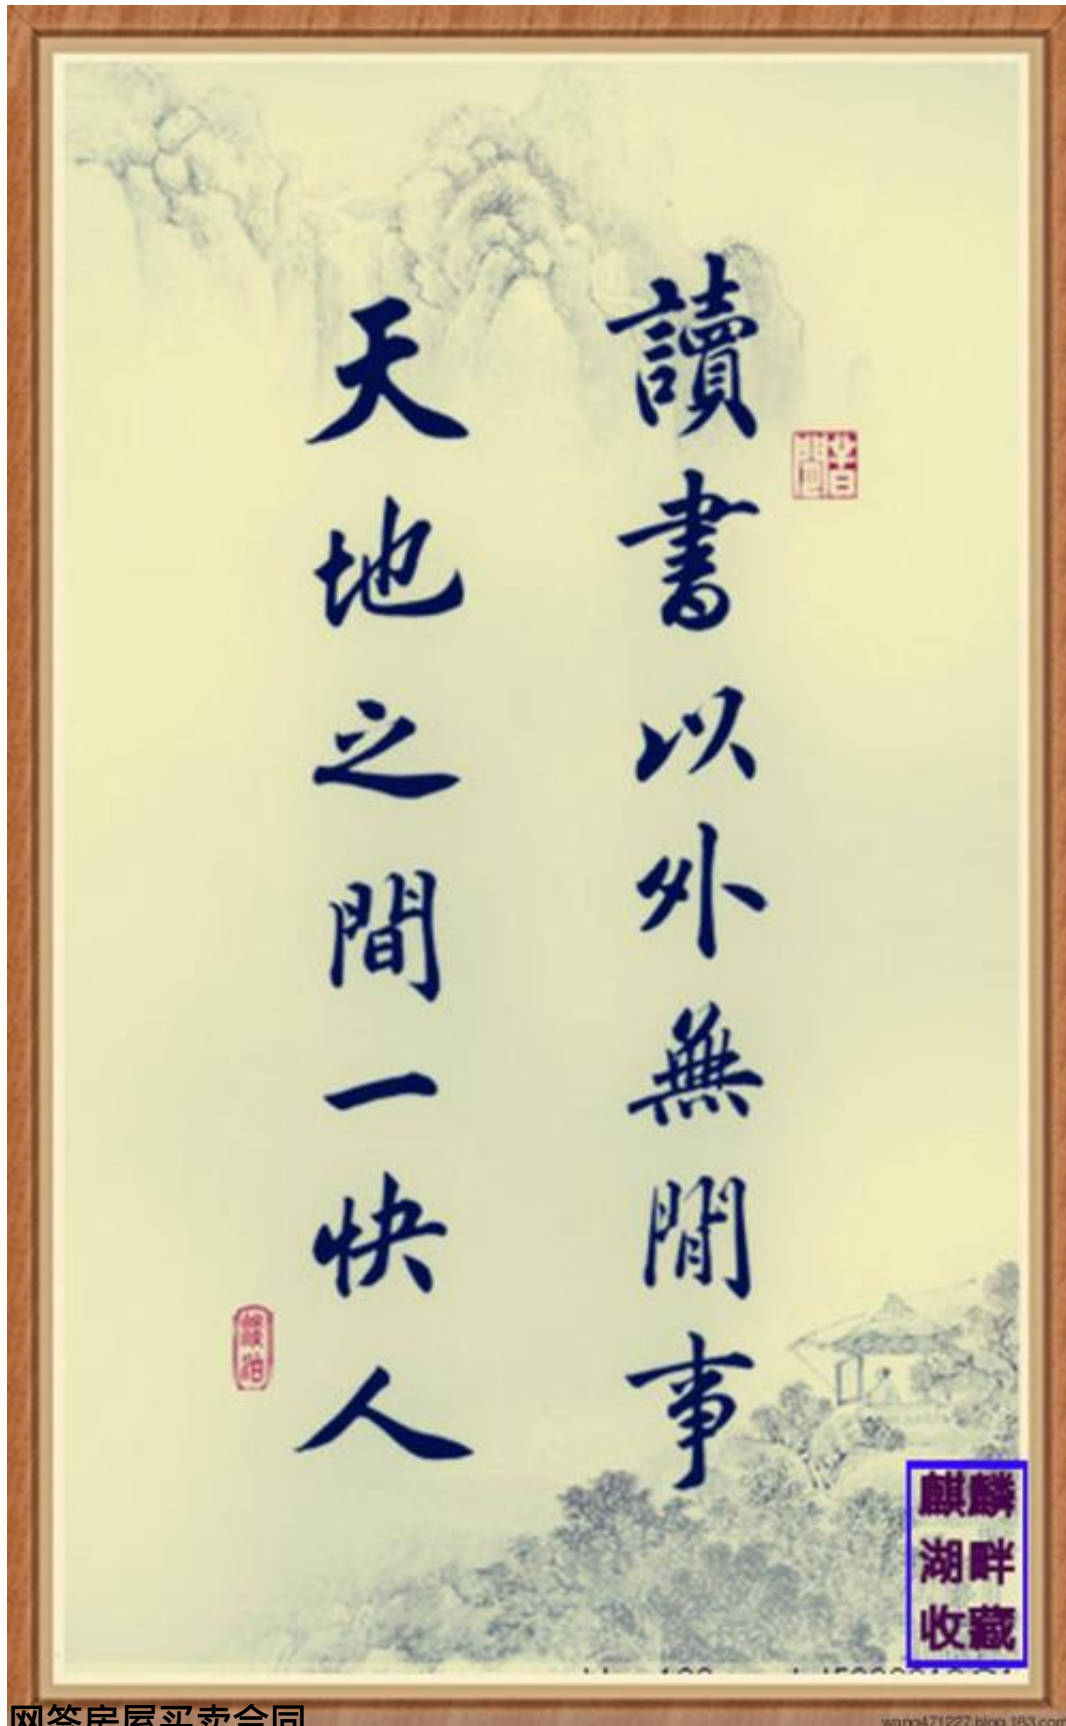 讀書以外無閒事
天地之間一快人
麒麟
湖畔
收藏
网签房屋买卖合同
wang471227.blog.163.com